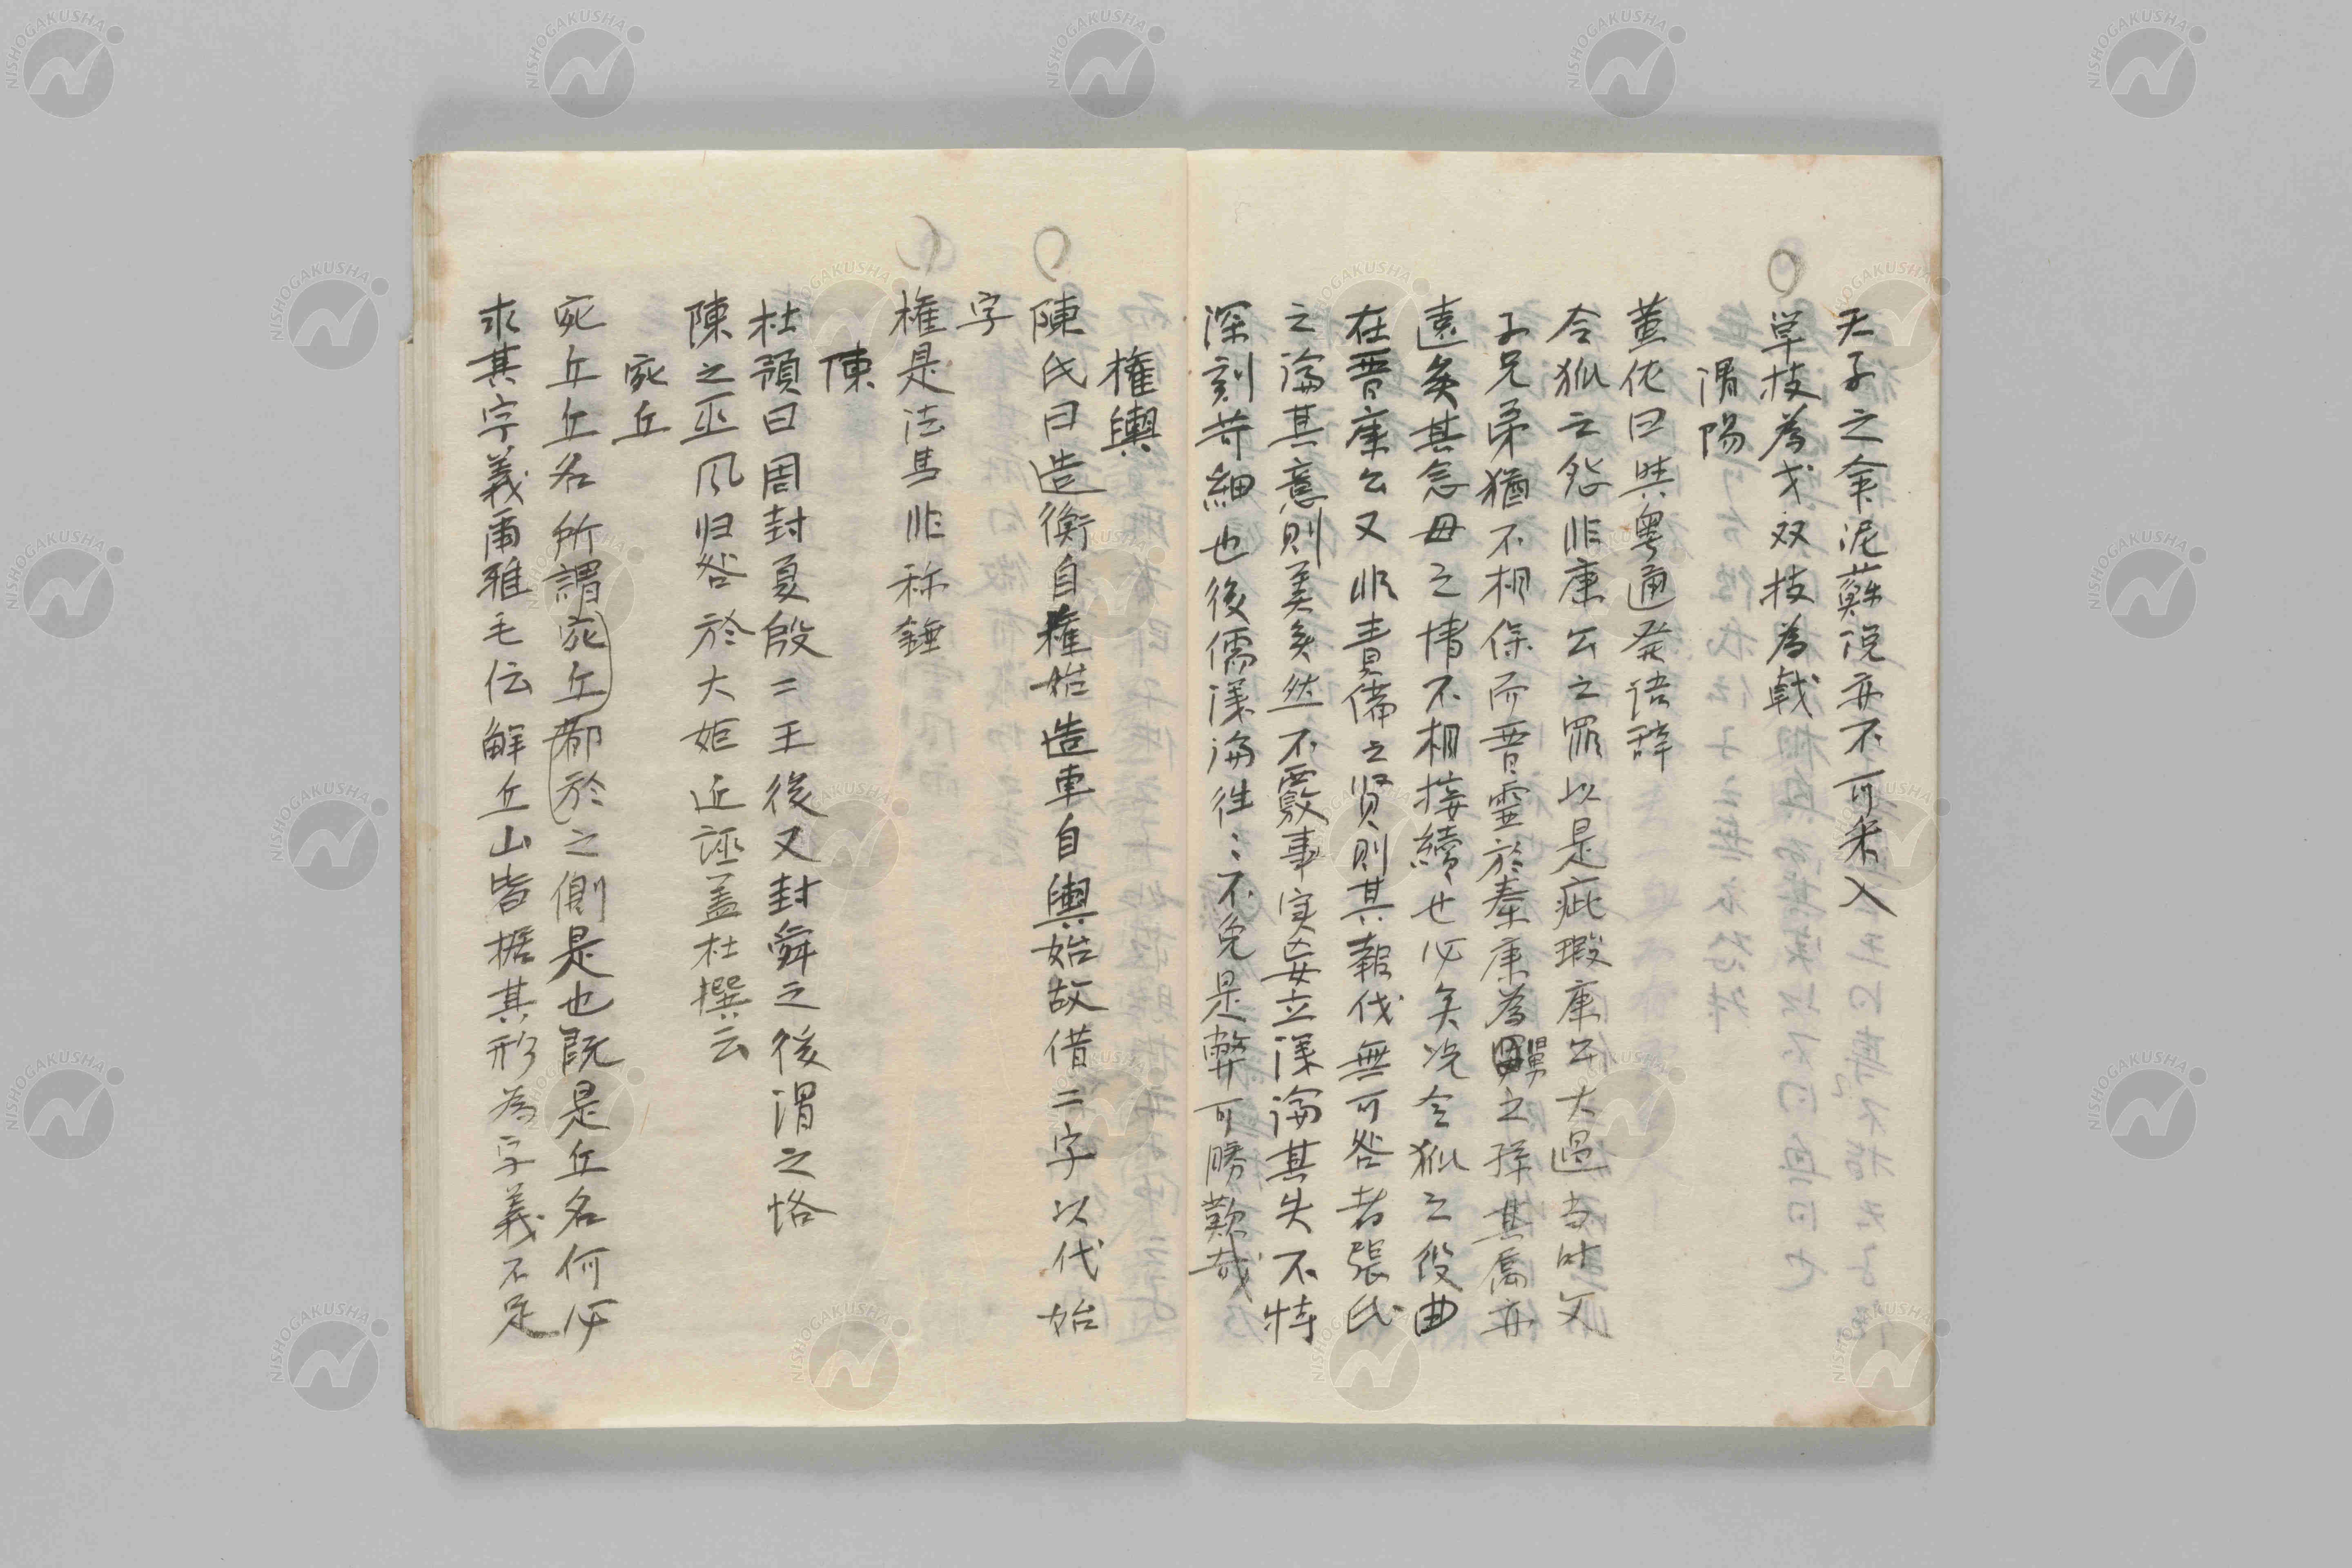 天子之命泥蘇説亦不可采入
単枝為戈双枝為戟
渭陽
董佗曰與粤通発语辞
令狐之怨非康公之罪以是疵瑕康公大過当时父
子兄弟猶不相保而晋霊於秦康為舅之孫其属亦
遠矣其念母之情不相接續也必矣况令狐之役曲
在晋康公又非責備之贤則其報伐無可咎者張氏
之論其意則美矣然不覈事实妄立漢論其失不特
深刻苛細也後儒漢論往〻不免是弊可勝歎哉
權輿
陳氏曰造衡自權始造車自輿始故借二字以代始
字
権是法馬非称錘
陳
杜預曰周封夏殷二王後又封舜之後谓之恪
陳之巫风归咎於大姫近誣盖杜撰云
宛丘
宛丘丘名所謂宛丘都於之側是也既是丘名何必
求其字義爾雅毛伝解丘山皆据其形為字義不足
NISHOGAKUSHA